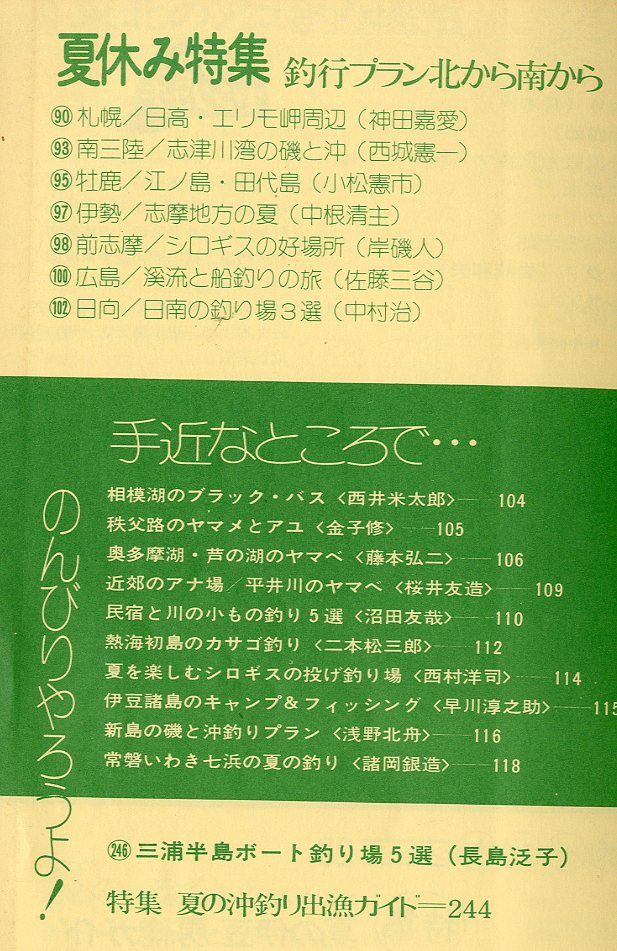 夏休み特集 釣行プラン北から南から
90 札幌／日高・エリモ岬周辺（神田嘉愛）
93 南三陸／志津川湾の磯と沖（西城憲一）
95 牡鹿／江ノ島・田代島（小松憲市）
97 伊勢／志摩地方の夏（中根清主）
98 前志摩／シロギスの好場所（岸磯人）
100 広島／溪流と船釣りの旅（佐藤三谷）
102 日向／日南の釣り場3選（中村治）
手近なところで…
のんびりやろうよ！
相模湖のブラック・バス〈西井米太郎〉——104
秩父路のヤマメとアユ〈金子修〉——105
奥多摩湖・芦の湖のヤマベ〈藤本弘二〉——106
近郊のアナ場／平井川のヤマベ〈桜井友造〉——109
民宿と川の小もの釣り5選〈沼田友哉〉——110
熱海初島のカサゴ釣り〈二本松三郎〉——112
夏を楽しむシロギスの投げ釣り場〈西村洋司〉——114
伊豆諸島のキャンプ&フィッシング〈早川淳之助〉——115
新島の磯と沖釣りプラン〈浅野北舟〉——116
常磐いわき七浜の夏の釣り〈諸岡銀造〉——118
246 三浦半島ボート釣り場5選（長島泛子）
特集 夏の沖釣り出漁ガイド＝244